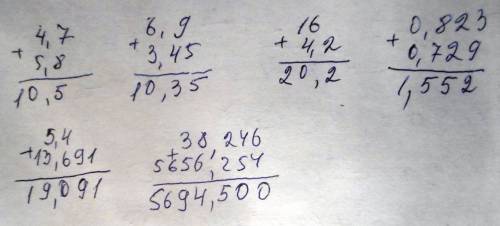 4,7
+
5,8
10,5
6,9
+
3,45
10,35
16
+
4,2
20,2
0,823
+
0,729
1,552
5,4
+
13,691
19,091
38,246
+
5656,254
5694,500